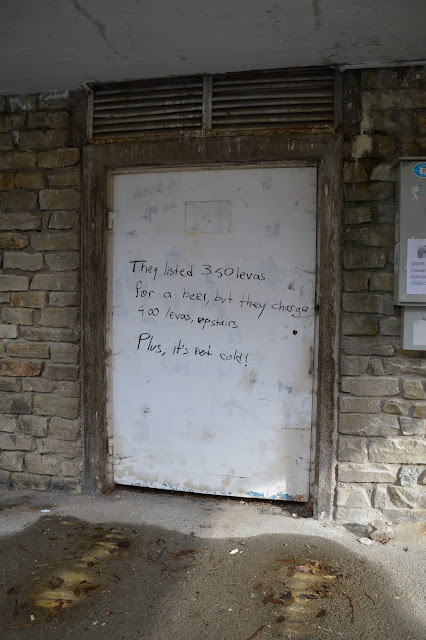 They listed 3.50 levas
for a beer, but they charge
4.00 levas, upstairs
Plus, it's not cold!